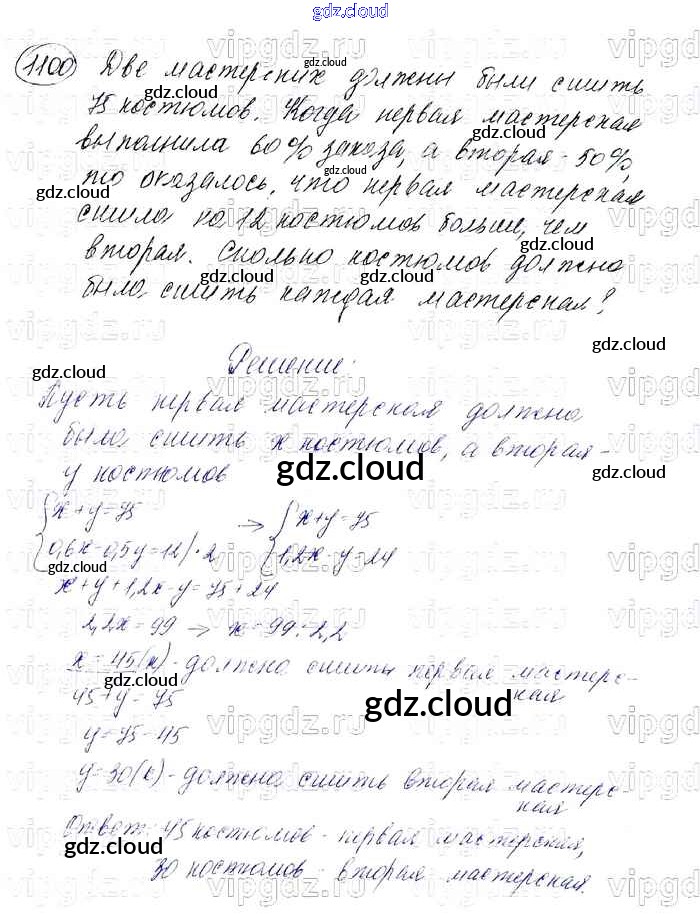 gdz.cloud
1100 Две мастерских должны были сшить
75 костюмов. Когда первая мастерская
выполнила 60% заказа, а вторая - 50%,
то оказалось, что первая мастерская
сшила на 12 костюмов больше, чем
вторая. Сколько костюмов должна
была сшить каждая мастерская?
Решение:
Пусть первая мастерская должна
была сшить x костюмов, а вторая -
y костюмов
{ x + y = 75 → { x + y = 75
0,6x - 0,5y = 12 | · 2 1,2x - y = 24
x + y + 1,2x - y = 75 + 24
2,2x = 99 → x = 99 : 2,2
x = 45 (к) - должна сшить первая мастерс-
кая
45 + y = 75
y = 75 - 45
y = 30 (к) - должна сшить вторая мастерс-
кая
Ответ: 45 костюмов - первая мастерская,
30 костюмов - вторая мастерская.